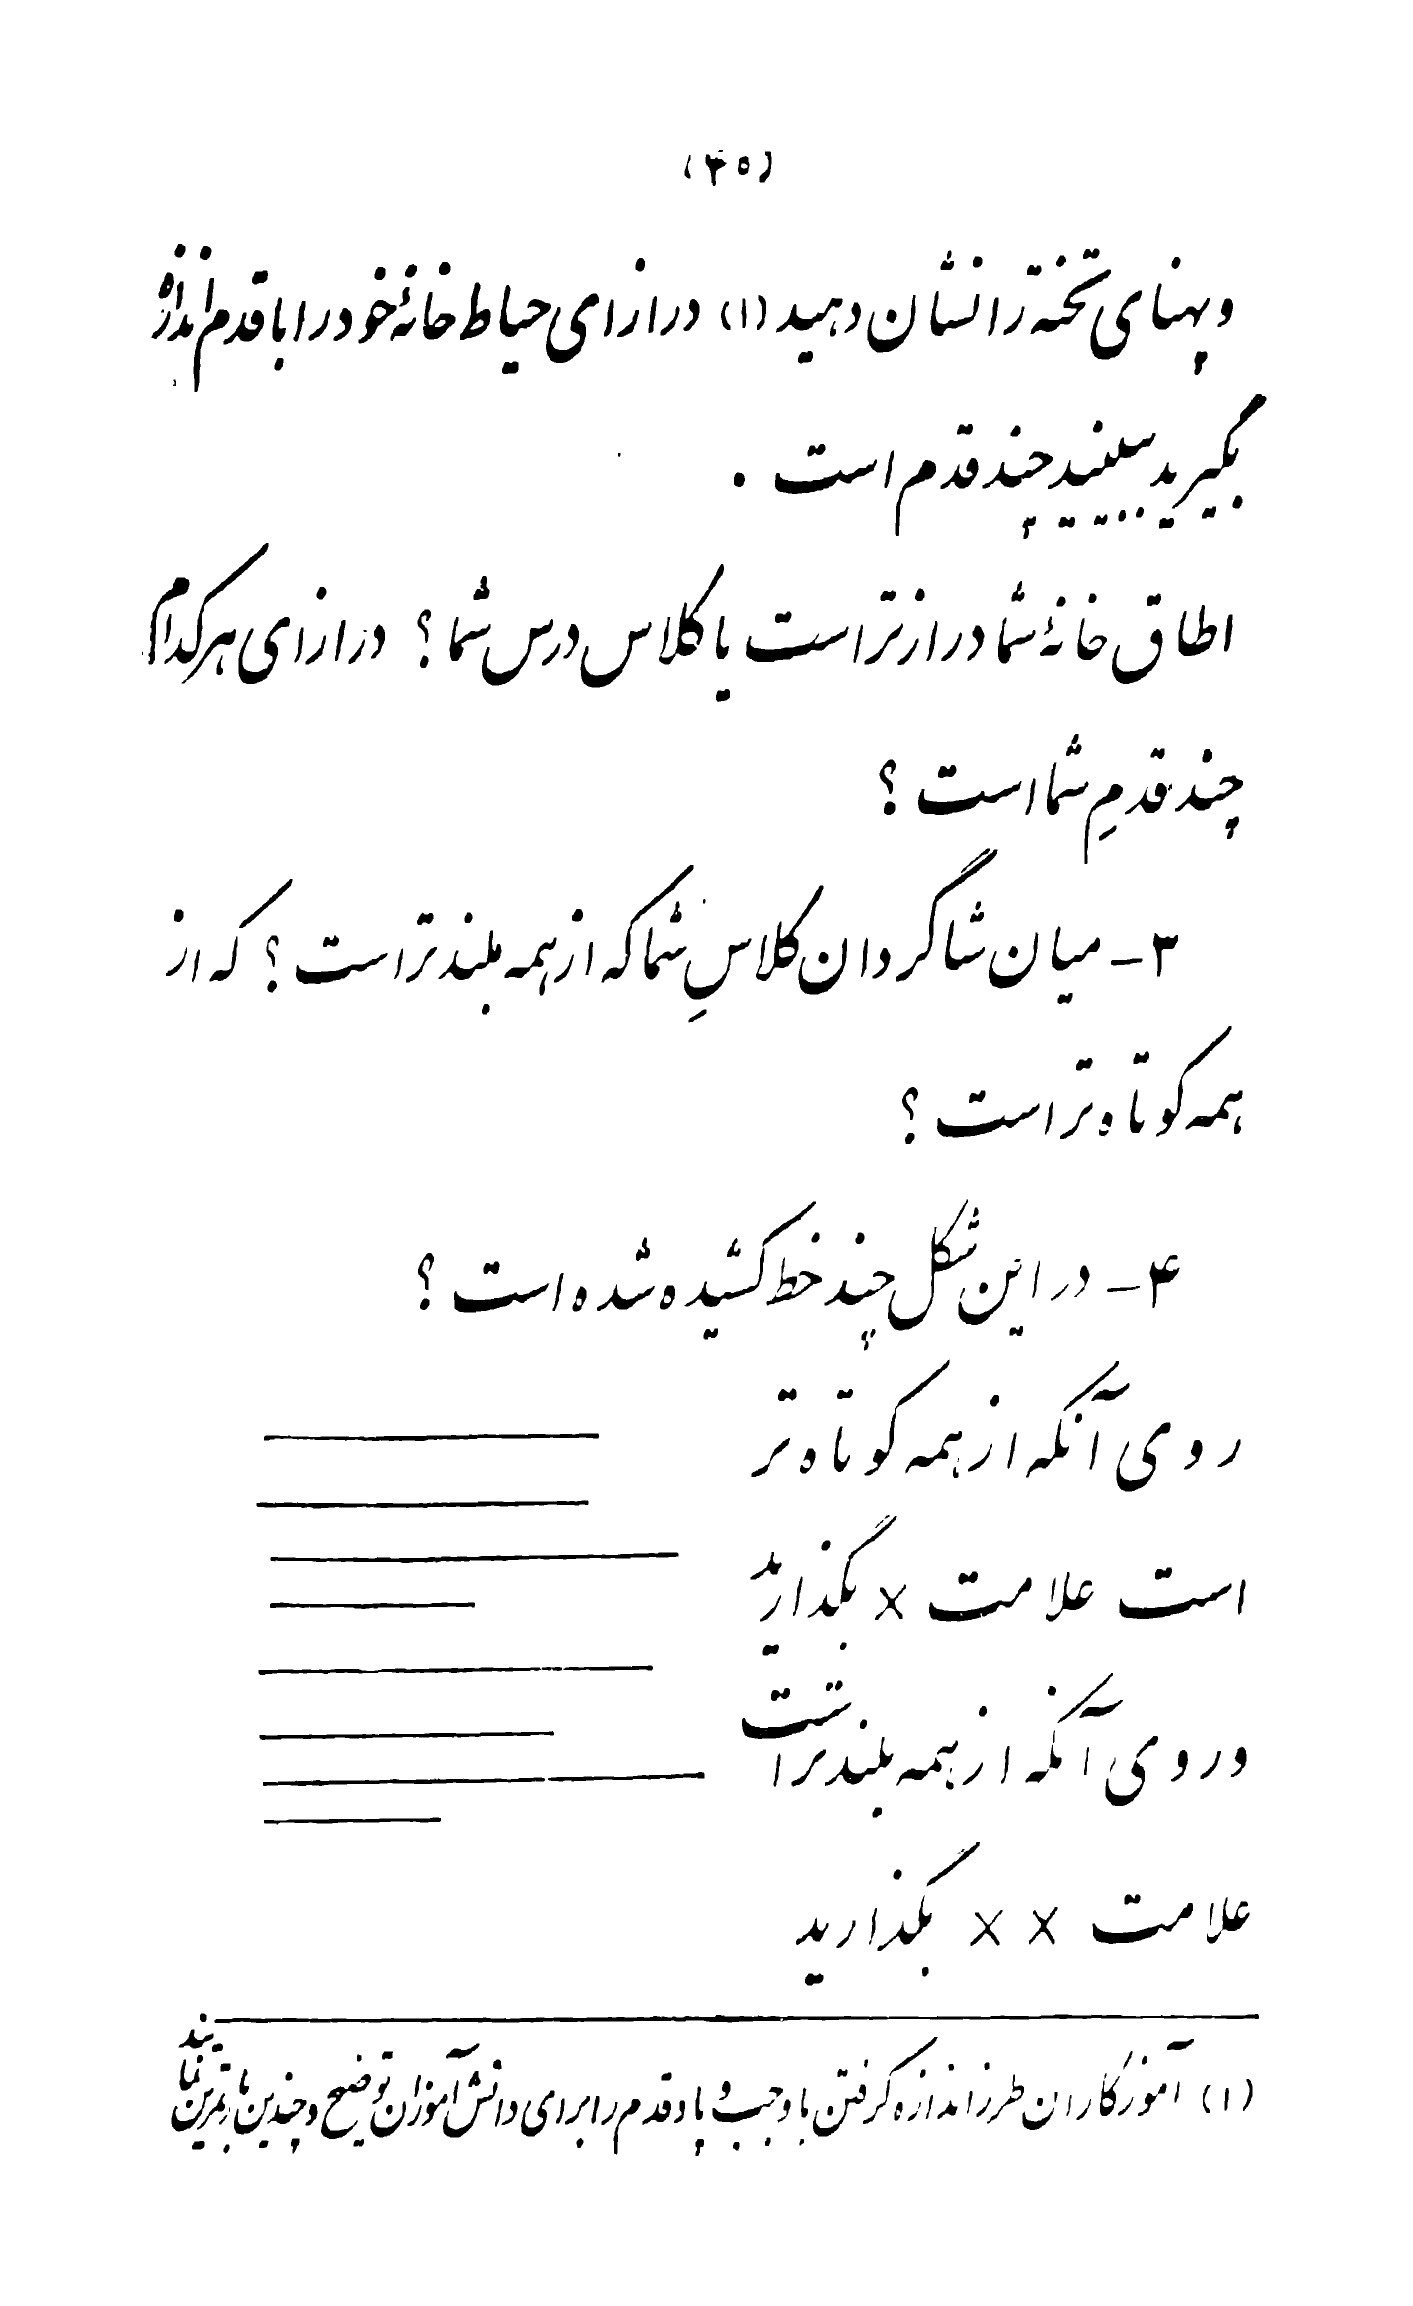 (۳۵)
و پهنای تخته را نشان دهید (۱) درازای حیاط خانهٔ خود را با قدم اندازه
بگیرید ببینید چند قدم است .
اطاق خانهٔ شما درازتر است یا کلاس درس شما ؟ درازای هر کدام
چند قدمِ شما است ؟
۳ - میان شاگردان کلاسِ شما که از همه بلندتر است ؟ که از
همه کوتاه تر است ؟
۴ - در این شکل چند خط کشیده شده است ؟
روی آنکه از همه کوتاه تر
است علامت × بگذارید
و روی آنکه از همه بلندتر است
علامت × × بگذارید
(۱) آموزگاران طرز اندازه گرفتن با وجب و پا و قدم را برای دانش آموزان توضیح و چندین بار تمرین نمایند